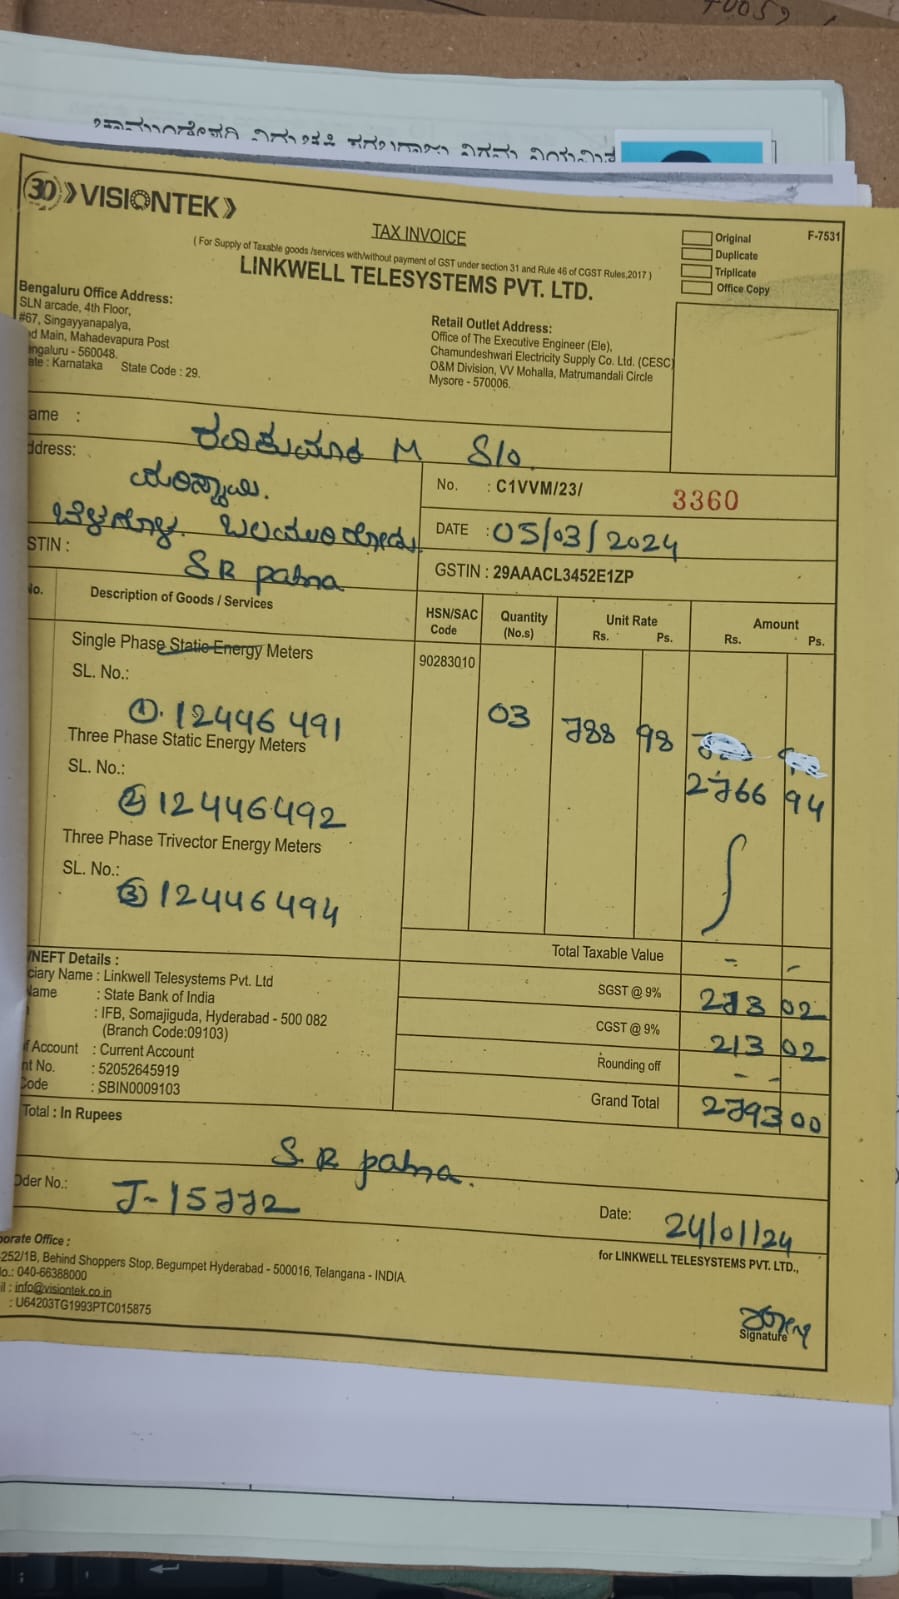 ಚಾಮುಂಡೇಶ್ವರಿ ವಿದ್ಯುಚ್ಛಕ್ತಿ ಸರಬರಾಜು ನಿಗಮ ನಿಯಮಿತ
30 VISIONTEK
TAX INVOICE
( For Supply of Taxable goods /services with/without payment of GST under section 31 and Rule 46 of CGST Rules,2017 )
LINKWELL TELESYSTEMS PVT. LTD.
F-7531
Original
Duplicate
Triplicate
Office Copy
Bengaluru Office Address:
SLN arcade, 4th Floor,
#67, Singayyanapalya,
Main, Mahadevapura Post
560048.
Karnataka State Code : 29.
Retail Outlet Address:
Office of The Executive Engineer (Ele),
Chamundeshwari Electricity Supply Co. Ltd. (CESC)
O&M Division, VV Mohalla, Matrumandali Circle
Mysore - 570006.
ame : ರವಿಕುಮಾರ M S/o.
ddress:
ಬೆಳಗೊಳ. ಬಲಮುರಿ ರೋಡು
STIN : S R patna
No. : C1VVM/23/ 3360
DATE : 05/03/2024
GSTIN : 29AAACL3452E1ZP
No. Description of Goods / Services HSN/SAC Code Quantity (No.s) Unit Rate Rs. Ps. Amount Rs. Ps.
Single Phase Static Energy Meters 90283010
SL. No.:
① 12446491 03 788 98
Three Phase Static Energy Meters
SL. No.: 2766 94
② 12446492
Three Phase Trivector Energy Meters
SL. No.:
③ 12446494
Total Taxable Value - -
SGST @ 9% 213 02
CGST @ 9% 213 02
Rounding off - -
Grand Total 2793 00
/NEFT Details :
ciary Name : Linkwell Telesystems Pvt. Ltd
Name : State Bank of India
: IFB, Somajiguda, Hyderabad - 500 082
(Branch Code:09103)
f Account : Current Account
nt No. : 52052645919
Code : SBIN0009103
Total : In Rupees
S R patna.
Oder No.: J-15772 Date: 24/01/24
for LINKWELL TELESYSTEMS PVT. LTD.,
porate Office :
252/1B, Behind Shoppers Stop, Begumpet Hyderabad - 500016, Telangana - INDIA
lo.: 040-66388000
il : info@visiontek.co.in
: U64203TG1993PTC015875
Signature